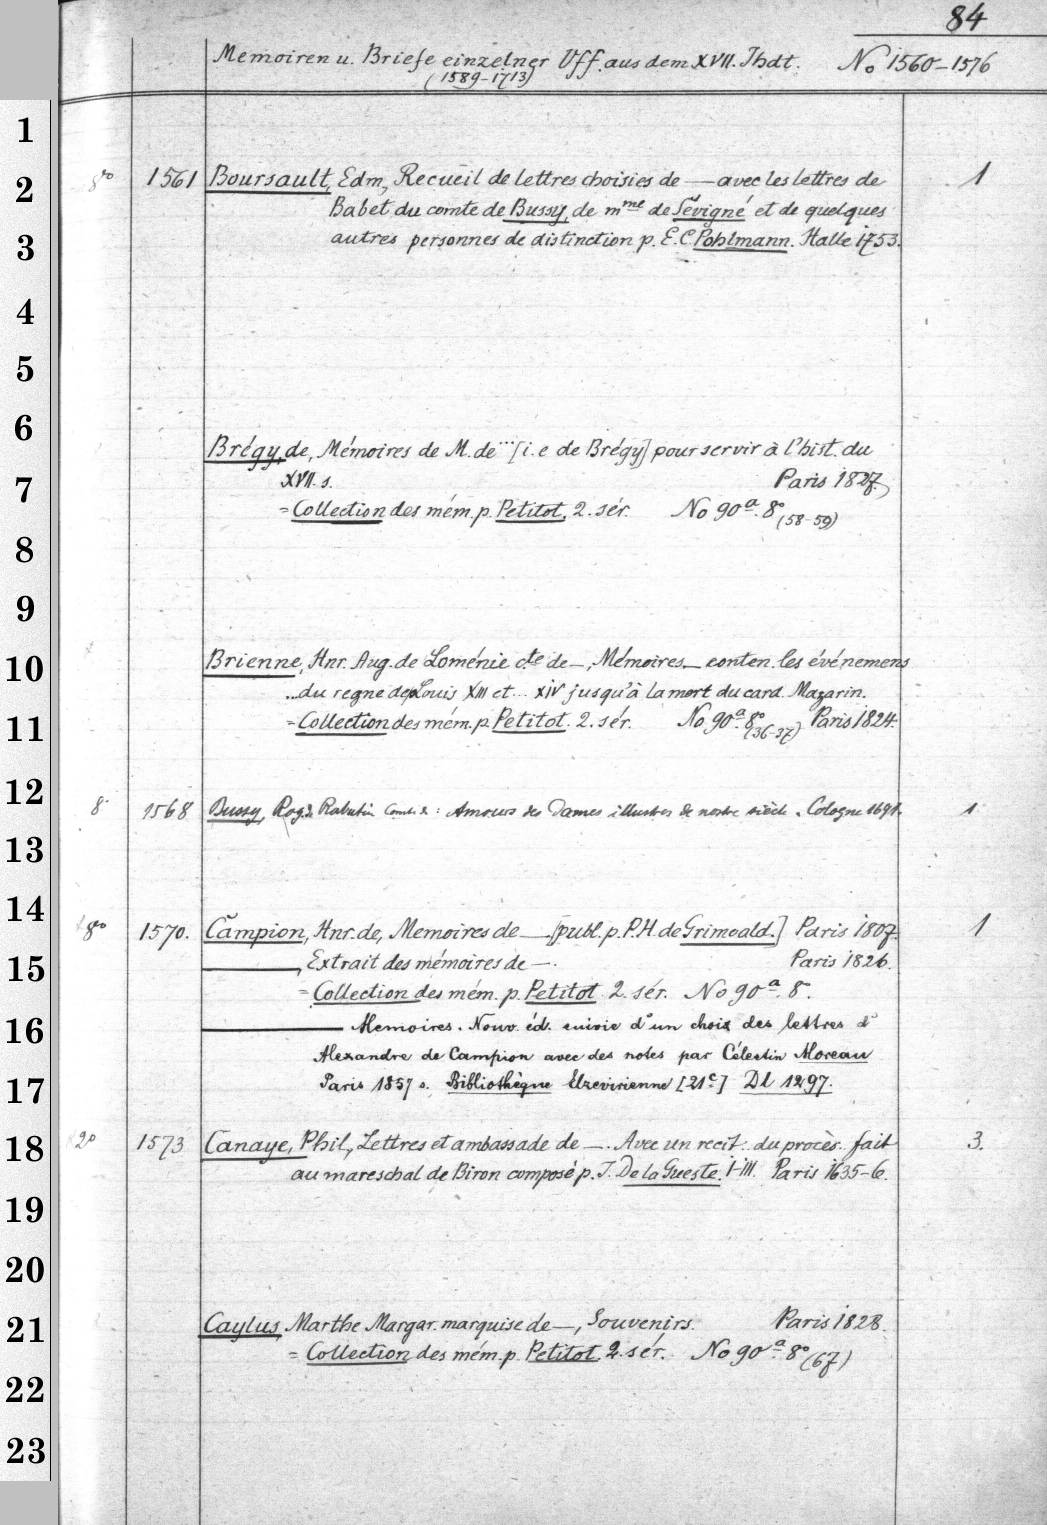 84
Memoiren u. Briefe einzelner Vff. aus dem XVII. Jhdt. No 1560-1576
(1589-1713)
1
2
3
4
5
6
7
8
9
10
11
12
13
14
15
16
17
18
19
20
21
22
23
8vo 1561 Boursault, Edm., Recueil de lettres choisies de — avec les lettres de 1
Babet du comte de Bussy, de mme de Sévigné et de quelques
autres personnes de distinction p. E. C. Pohlmann. Halle 1753.
Brégy, de, Mémoires de M. de ... [i. e de Brégy] pour servir à l'hist. du
XVII. s. Paris 1827.
= Collection des mém. p. Petitot, 2. sér. No 90a. 8° (58-59)
Brienne, Hnr. Aug. de Loménie cte de —, Mémoires — conten. les événemens
... du regne de Louis XIII et ... XIV jusqu'à la mort du card. Mazarin.
= Collection des mém. p. Petitot. 2. sér. No 90a. 8° (36-37) Paris 1824.
8° 1568 Bussy, Rog. d. Rabutin Comte d. : Amours des Dames illustres de nostre siècle. Cologne 1691. 1
8vo 1570. Campion, Hnr. de, Memoires de — [publ. p. P. H. de Grimoald.] Paris 1807. 1
———, Extrait des mémoires de —. Paris 1826.
= Collection des mém. p. Petitot 2. sér. No 90a. 8°.
——— Memoires. Nouv. éd. suivie d'un choix des lettres d'
Alexandre de Campion avec des notes par Célestin Moreau
Paris 1857 s. Bibliothèque Elzevirienne [21c] Dl 1297.
2° 1573 Canaye, Phil., Lettres et ambassade de —. Avec un recit. du procès fait 3.
au mareschal de Biron composé p. J. De la Gueste. I-III. Paris 1635-6.
Caylus, Marthe Margar. marquise de —, Souvenirs. Paris 1828.
= Collection des mém. p. Petitot. 2. sér. No 90a. 8° (67)